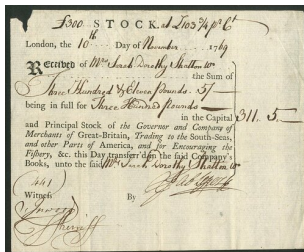 £300 STOCK, at £103 3/4 p Ct
London, the 10th Day of November 1769
Received of Mrs Sarah Dorothy Skatton Wo
the Sum of
Three Hundred & Eleven Pounds 5/—
being in full for Three Hundred Pounds
in the Capital 311. 5.—
and Principal Stock of the Governor and Company of
Merchants of Great-Britain, Trading to the South-Seas,
and other Parts of America, and for Encouraging the
Fishery, &c. this Day transfer'd in the said Company's
Books, unto the said Mrs Sarah Dorothy Skatton Wo
441
Witness By